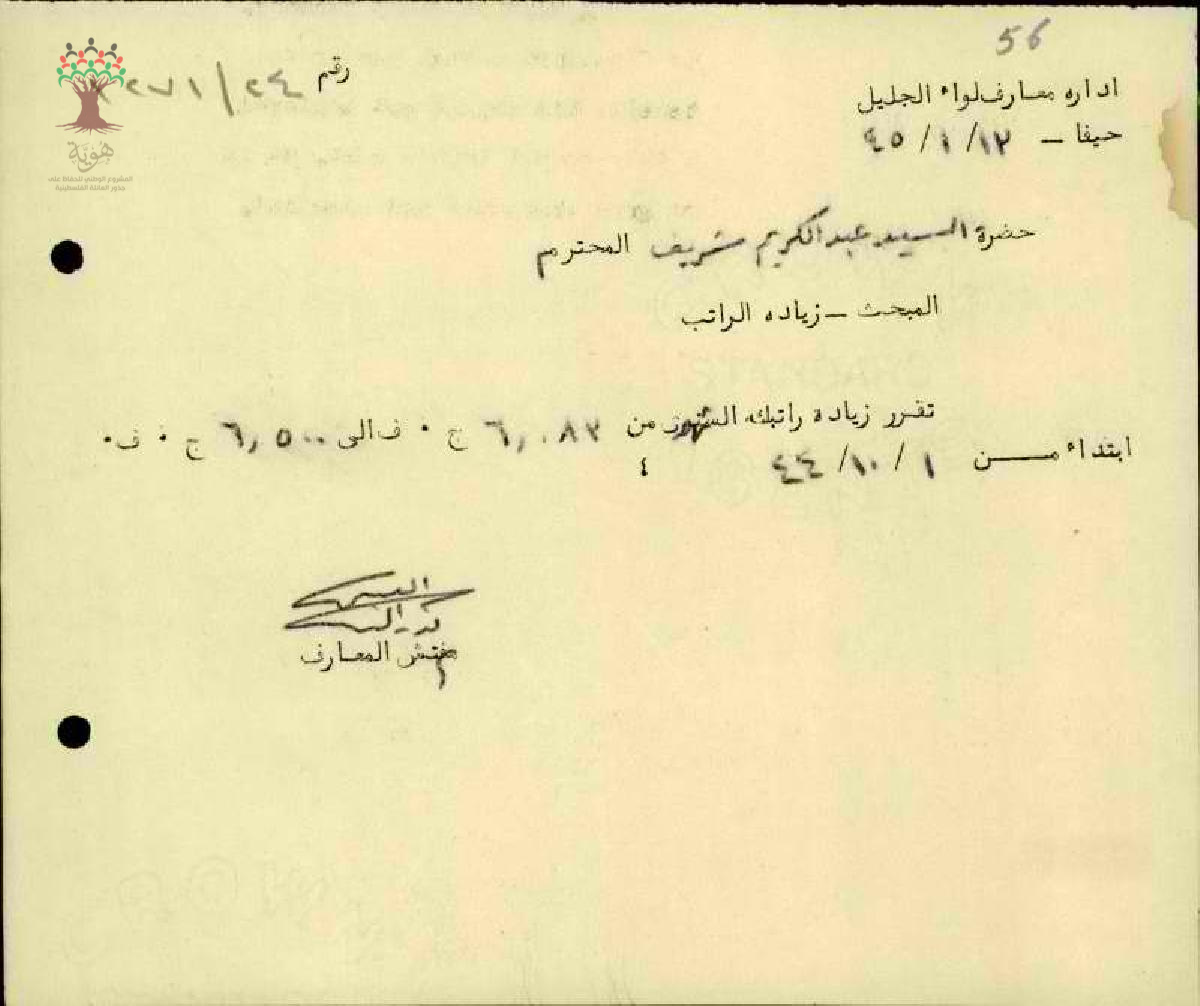 56
اداره معارف لواء الجليل
رقم ٢٤/٢٧١٢
حيفا - ٤٥/١/١٢
هوية
المشروع الوطني للحفاظ على
جذور العائلة الفلسطينية
حضرة السيد عبد الكريم شريف المحترم
المبحث - زياده الراتب
تقرر زياده راتبك الشهري من ٦,٠٨٣ ج ٠ ف الى ٦,٥٠٠ ج ٠ ف ٠
ابتداء من ٤٤/١٠/١
مفتش المعارف